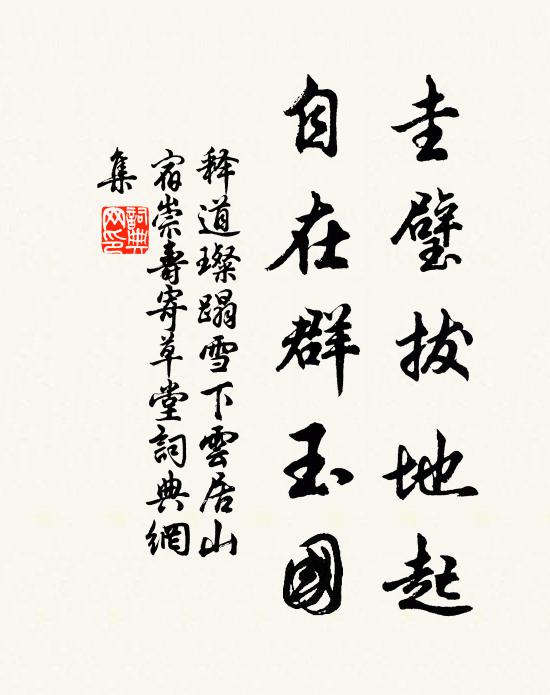 圭璧拔地起
自在群玉國
释道璨蹋雪下雲居山
宿崇壽寄草堂詞典網
集
詞典
网印